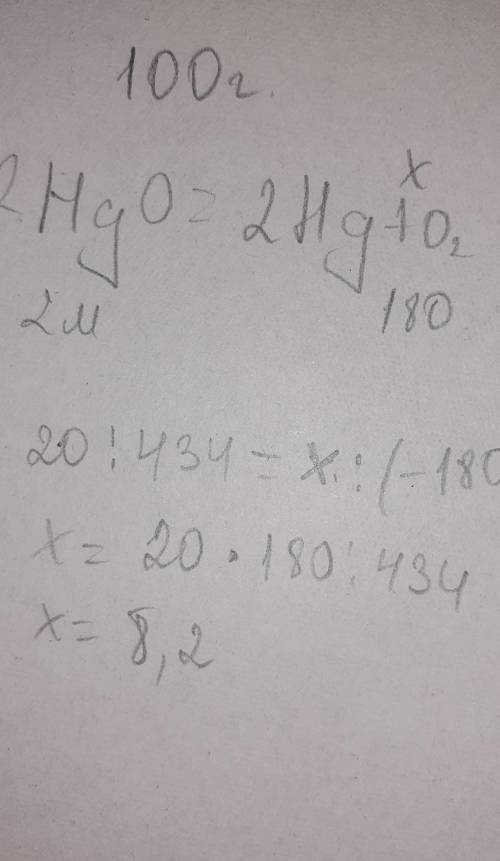 100г.
x
2HgO = 2Hg+1O₂
2м 180
20:434 = x:(-180
x = 20·180:434
x = 8,2